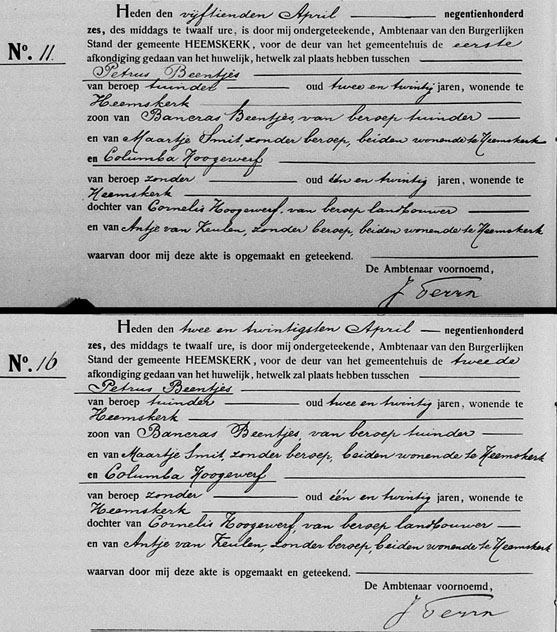 Heden den vijftienden April — negentienhonderd
zes, des middags te twaalf ure, is door mij ondergeteekende, Ambtenaar van den Burgerlijken
No. 11.
Stand der gemeente HEEMSKERK, voor de deur van het gemeentehuis de eerste
afkondiging gedaan van het huwelijk, hetwelk zal plaats hebben tusschen
Petrus Beentjes
van beroep tuinder — oud twee en twintig jaren, wonende te
Heemskerk
zoon van Bancras Beentjes, van beroep tuinder —
en van Maartje Smit, zonder beroep, beiden wonende te Heemskerk
en Columba Hoogewerf
van beroep zonder — oud één en twintig jaren, wonende te
Heemskerk
dochter van Cornelis Hoogewerf, van beroep landbouwer —
en van Antje van Zeulen, zonder beroep, beiden wonende te Heemskerk
waarvan door mij deze akte is opgemaakt en geteekend.
De Ambtenaar voornoemd,
Heden den twee en twintigsten April — negentienhonderd
zes, des middags te twaalf ure, is door mij ondergeteekende, Ambtenaar van den Burgerlijken
No. 16
Stand der gemeente HEEMSKERK, voor de deur van het gemeentehuis de tweede
afkondiging gedaan van het huwelijk, hetwelk zal plaats hebben tusschen
Petrus Beentjes
van beroep tuinder — oud twee en twintig jaren, wonende te
Heemskerk
zoon van Bancras Beentjes, van beroep tuinder —
en van Maartje Smit, zonder beroep, beiden wonende te Heemskerk
en Columba Hoogewerf
van beroep zonder — oud één en twintig jaren, wonende te
Heemskerk
dochter van Cornelis Hoogewerf, van beroep landbouwer —
en van Antje van Zeulen, zonder beroep, beiden wonende te Heemskerk
waarvan door mij deze akte is opgemaakt en geteekend.
De Ambtenaar voornoemd,